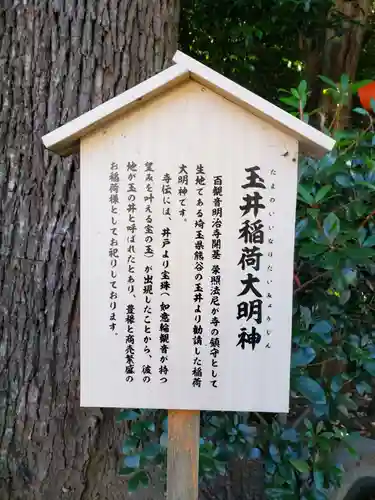 玉井稲荷大明神
たまのいいなりだいみょうじん
百観音明治寺開基 榮照法尼が寺の鎮守として
生地である埼玉県熊谷の玉井より勧請した稲荷
大明神です。
寺伝には、井戸より宝珠（如意輪観音が持つ
望みを叶える宝の玉）が出現したことから、彼の
地が玉の井と呼ばれたとあり、豊穣と商売繁盛の
お稲荷様としてお祀りしております。